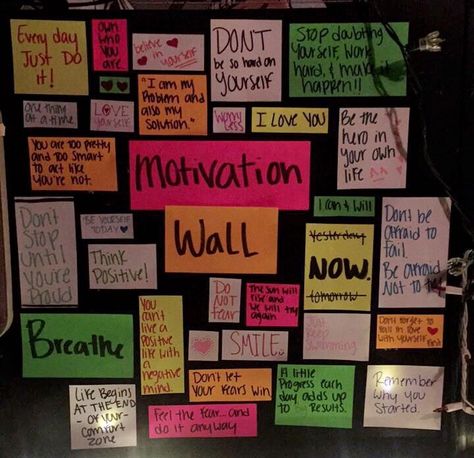 Every day
Just Do
it!
own
who you
are
believe in
yourself
DON'T
be so hard on
yourself
Stop doubting
yourself, work
hard, & make it
happen!!
"I am my
Problem and
also my
solution."
one thing
at a time
LOVE
yourself
Worry
Less
I Love YOU
Be the
hero in
your own
life
You are too pretty
and too smart
to act like
You're not.
Motivation
I can & Will
Dont
Stop
Until
You're
Proud
BE YOURSELF
TODAY
Wall
Yesterday
NOW.
tomorrow
Don't be
afraid to
fail.
Be afraid
Not to
Think
Positive!
DO
NOT
fear
The sun will
rise and
we will try
again
You
can't
live a
Positive
life with
a
negative
mind.
Breathe
SMILE
Just
Keep
Swimming
Dont forget to
fall in love
with yourself
first
Life Begins
AT THE END
- OF YOUR -
comfort
zone
Don't let
Your fears win
A little
Progress each
day adds up
to Results.
Remember
Why You
Started.
Feel the fear... and
do it anyway